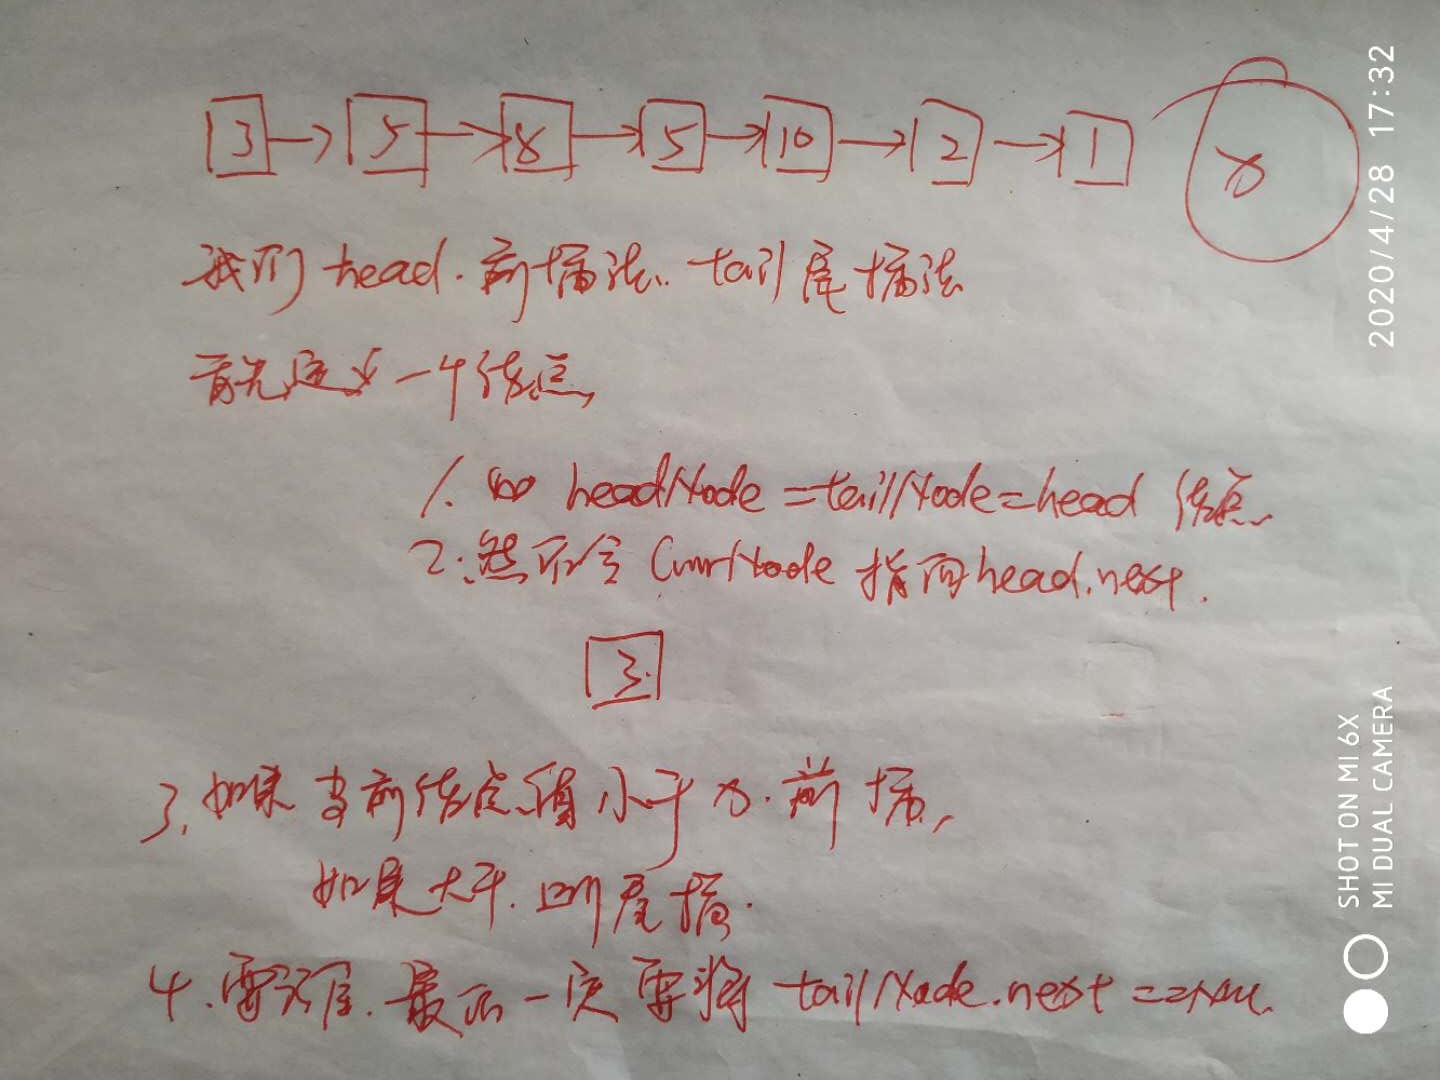 3 → 5 → 8 → 5 → 10 → 2 → 1 x
我们 head. 前插法. tail 尾插法
首先定义一个结点,
1. headNode = tailNode = head 结点.
2. 然后令 CurrNode 指向 head.next.
3.
3. 如果当前结点值小于 x. 前插,
如果大于. 则尾插.
4. 要注意. 最后一定要将 tailNode.next = null.
2020/4/28 17:32
SHOT ON MI 6X
MI DUAL CAMERA